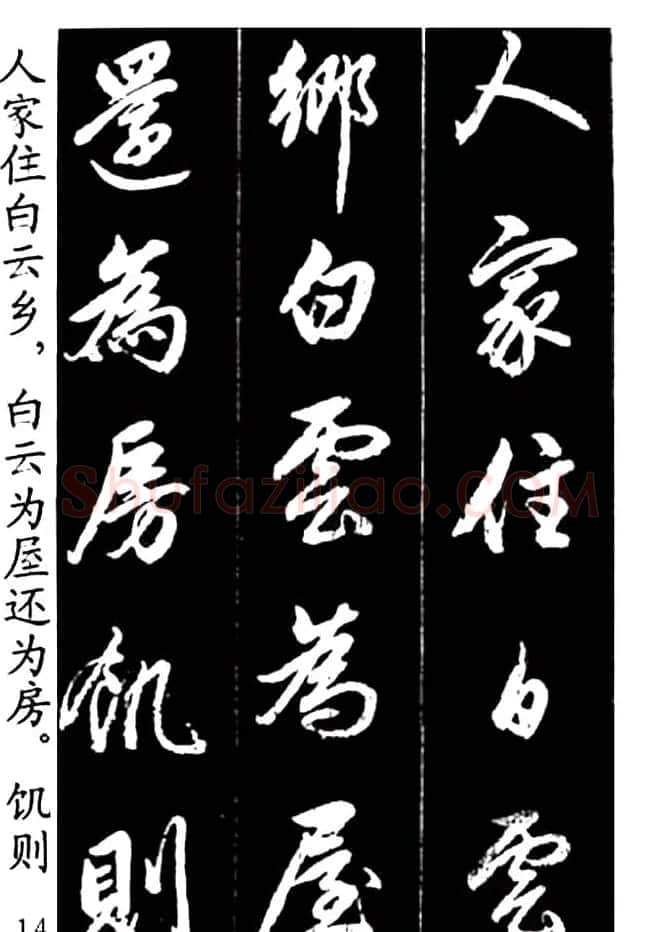 人家住白雲
鄉白雲為屋
還為房飢則
人家住白云乡，白云为屋还为房。饥则
14
Shufaziliao.COM